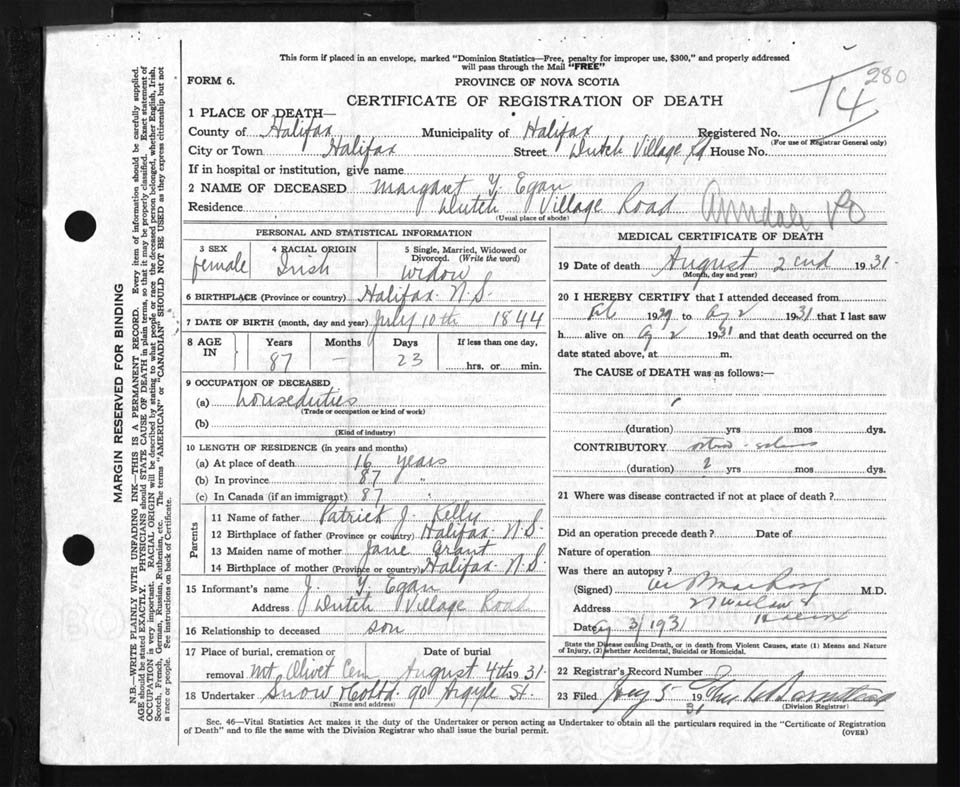 This form if placed in an envelope, marked "Dominion Statistics—Free, penalty for improper use, $300," and properly addressed
will pass through the Mail "FREE"
FORM 6.
PROVINCE OF NOVA SCOTIA
T4 280
CERTIFICATE OF REGISTRATION OF DEATH
1 PLACE OF DEATH—
County of Halifax Municipality of Halifax Registered No.
(For use of Registrar General only)
City or Town Halifax Street Dutch Village Rd House No.
If in hospital or institution, give name
2 NAME OF DECEASED Margaret Y. Egan
Residence Dutch Village Road Armdale PO
(Usual place of abode)
PERSONAL AND STATISTICAL INFORMATION
3 SEX 4 RACIAL ORIGIN 5 Single, Married, Widowed or
Divorced. (Write the word)
female Irish widow
6 BIRTHPLACE (Province or country) Halifax N.S.
7 DATE OF BIRTH (month, day and year) July 10th 1844
8 AGE IN Years Months Days If less than one day,
87 — 23 hrs. or min.
9 OCCUPATION OF DECEASED
(a) houseduties
(Trade or occupation or kind of work)
(b)
(Kind of industry)
10 LENGTH OF RESIDENCE (in years and months)
(a) At place of death 16 years
(b) In province 87 "
(c) In Canada (if an immigrant) 87 "
Parents
11 Name of father Patrick J. Kelly
12 Birthplace of father (Province or country) Halifax N.S.
13 Maiden name of mother Jane Grant
14 Birthplace of mother (Province or country) Halifax N.S.
15 Informant's name J. Y. Egan
Address Dutch Village Road
16 Relationship to deceased son
17 Place of burial, cremation or Date of burial
removal Mt Olivet Cem August 4th 1931.
18 Undertaker Snow & Co Ltd. 90 Argyle St.
(Name and address)
MEDICAL CERTIFICATE OF DEATH
19 Date of death August 2nd 1931.
(Month, day and year)
20 I HEREBY CERTIFY that I attended deceased from
1929 to Ag 2 1931 that I last saw
h alive on Ag 2 1931 and that death occurred on the
date stated above, at m.
The CAUSE of DEATH was as follows:—
(duration) yrs mos dys.
CONTRIBUTORY
(duration) 2 yrs mos dys.
21 Where was disease contracted if not at place of death?
Did an operation precede death? Date of
Nature of operation
Was there an autopsy?
(Signed) M.D.
Address
Date Ag 3/1931
State the Disease causing Death, or in death from Violent Causes, state (1) Means and Nature
of Injury, (2) whether Accidental, Suicidal or Homicidal.
22 Registrar's Record Number
23 Filed Aug 5 1931
(Division Registrar)
Sec. 46—Vital Statistics Act makes it the duty of the Undertaker or person acting as Undertaker to obtain all the particulars required in the "Certificate of Registration
of Death" and to file the same with the Division Registrar who shall issue the burial permit.
(OVER)
MARGIN RESERVED FOR BINDING
N.B.—WRITE PLAINLY WITH UNFADING INK—THIS IS A PERMANENT RECORD. Every item of information should be carefully supplied.
AGE should be stated EXACTLY. PHYSICIANS should STATE CAUSE OF DEATH in plain terms, so that it may be properly classified. Exact statement of
OCCUPATION is very important. RACIAL ORIGIN will be described by stating to what people or race the deceased person belonged, whether English, Irish,
Scotch, French, German, Russian, Ruthenian, etc. The terms "AMERICAN" or "CANADIAN" SHOULD NOT BE USED as they express citizenship but not
a race or people. See instructions on back of Certificate.